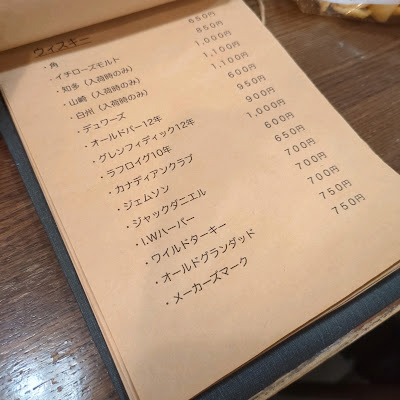 ウィスキー
・角 650円
・イチローズモルト 850円
・知多（入荷時のみ） 1,000円
・山崎（入荷時のみ） 1,100円
・白州（入荷時のみ） 1,100円
・デュワーズ 600円
・オールドパー12年 950円
・グレンフィディック12年 900円
・ラフロイグ10年 1,000円
・カナディアンクラブ 600円
・ジェムソン 650円
・ジャックダニエル 700円
・I.Wハーパー 700円
・ワイルドターキー 700円
・オールドグランダッド 750円
・メーカーズマーク 750円